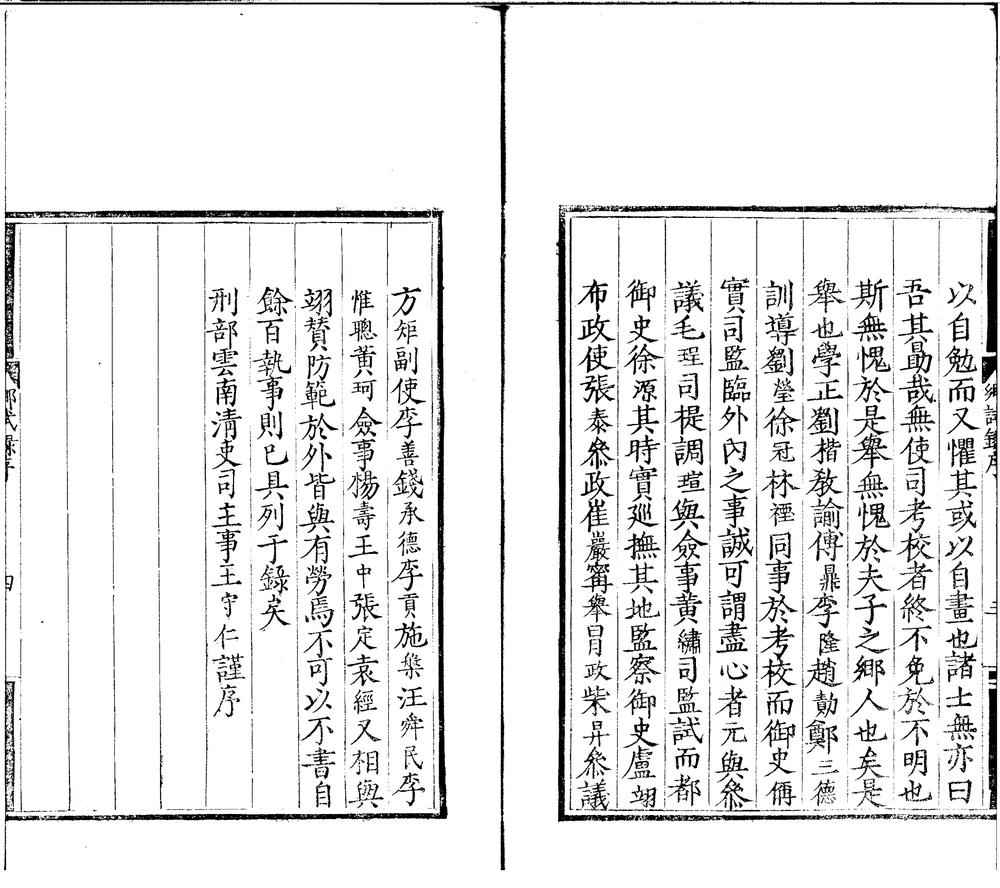 鄉試錄序
以自勉而又懼其或以自畫也諸士無亦曰
吾其勗哉無使司考校者終不免於不明也
斯無愧於是舉無愧於夫子之鄉人也矣是
舉也學正劉楷教諭傅鼐李隆趙勛鄭三德
訓導劉瑩徐冠林禋同事於考校而御史偁
實司監臨外內之事誠可謂盡心者元與叅
議毛珵司提調瑄與僉事黄繡司監試而都
御史徐源其時實廵撫其地監察御史盧翊
布政使張泰叅政崔巖甯舉冒政柴昇叅議
方矩副使李善錢承德李貢施槃汪舜民李
惟聰黄珂僉事楊壽王中張定袁經又相與
翊賛防範於外皆與有勞焉不可以不書自
餘百執事則已具列于錄矣
刑部雲南清吏司主事王守仁謹序
鄉試錄序
四